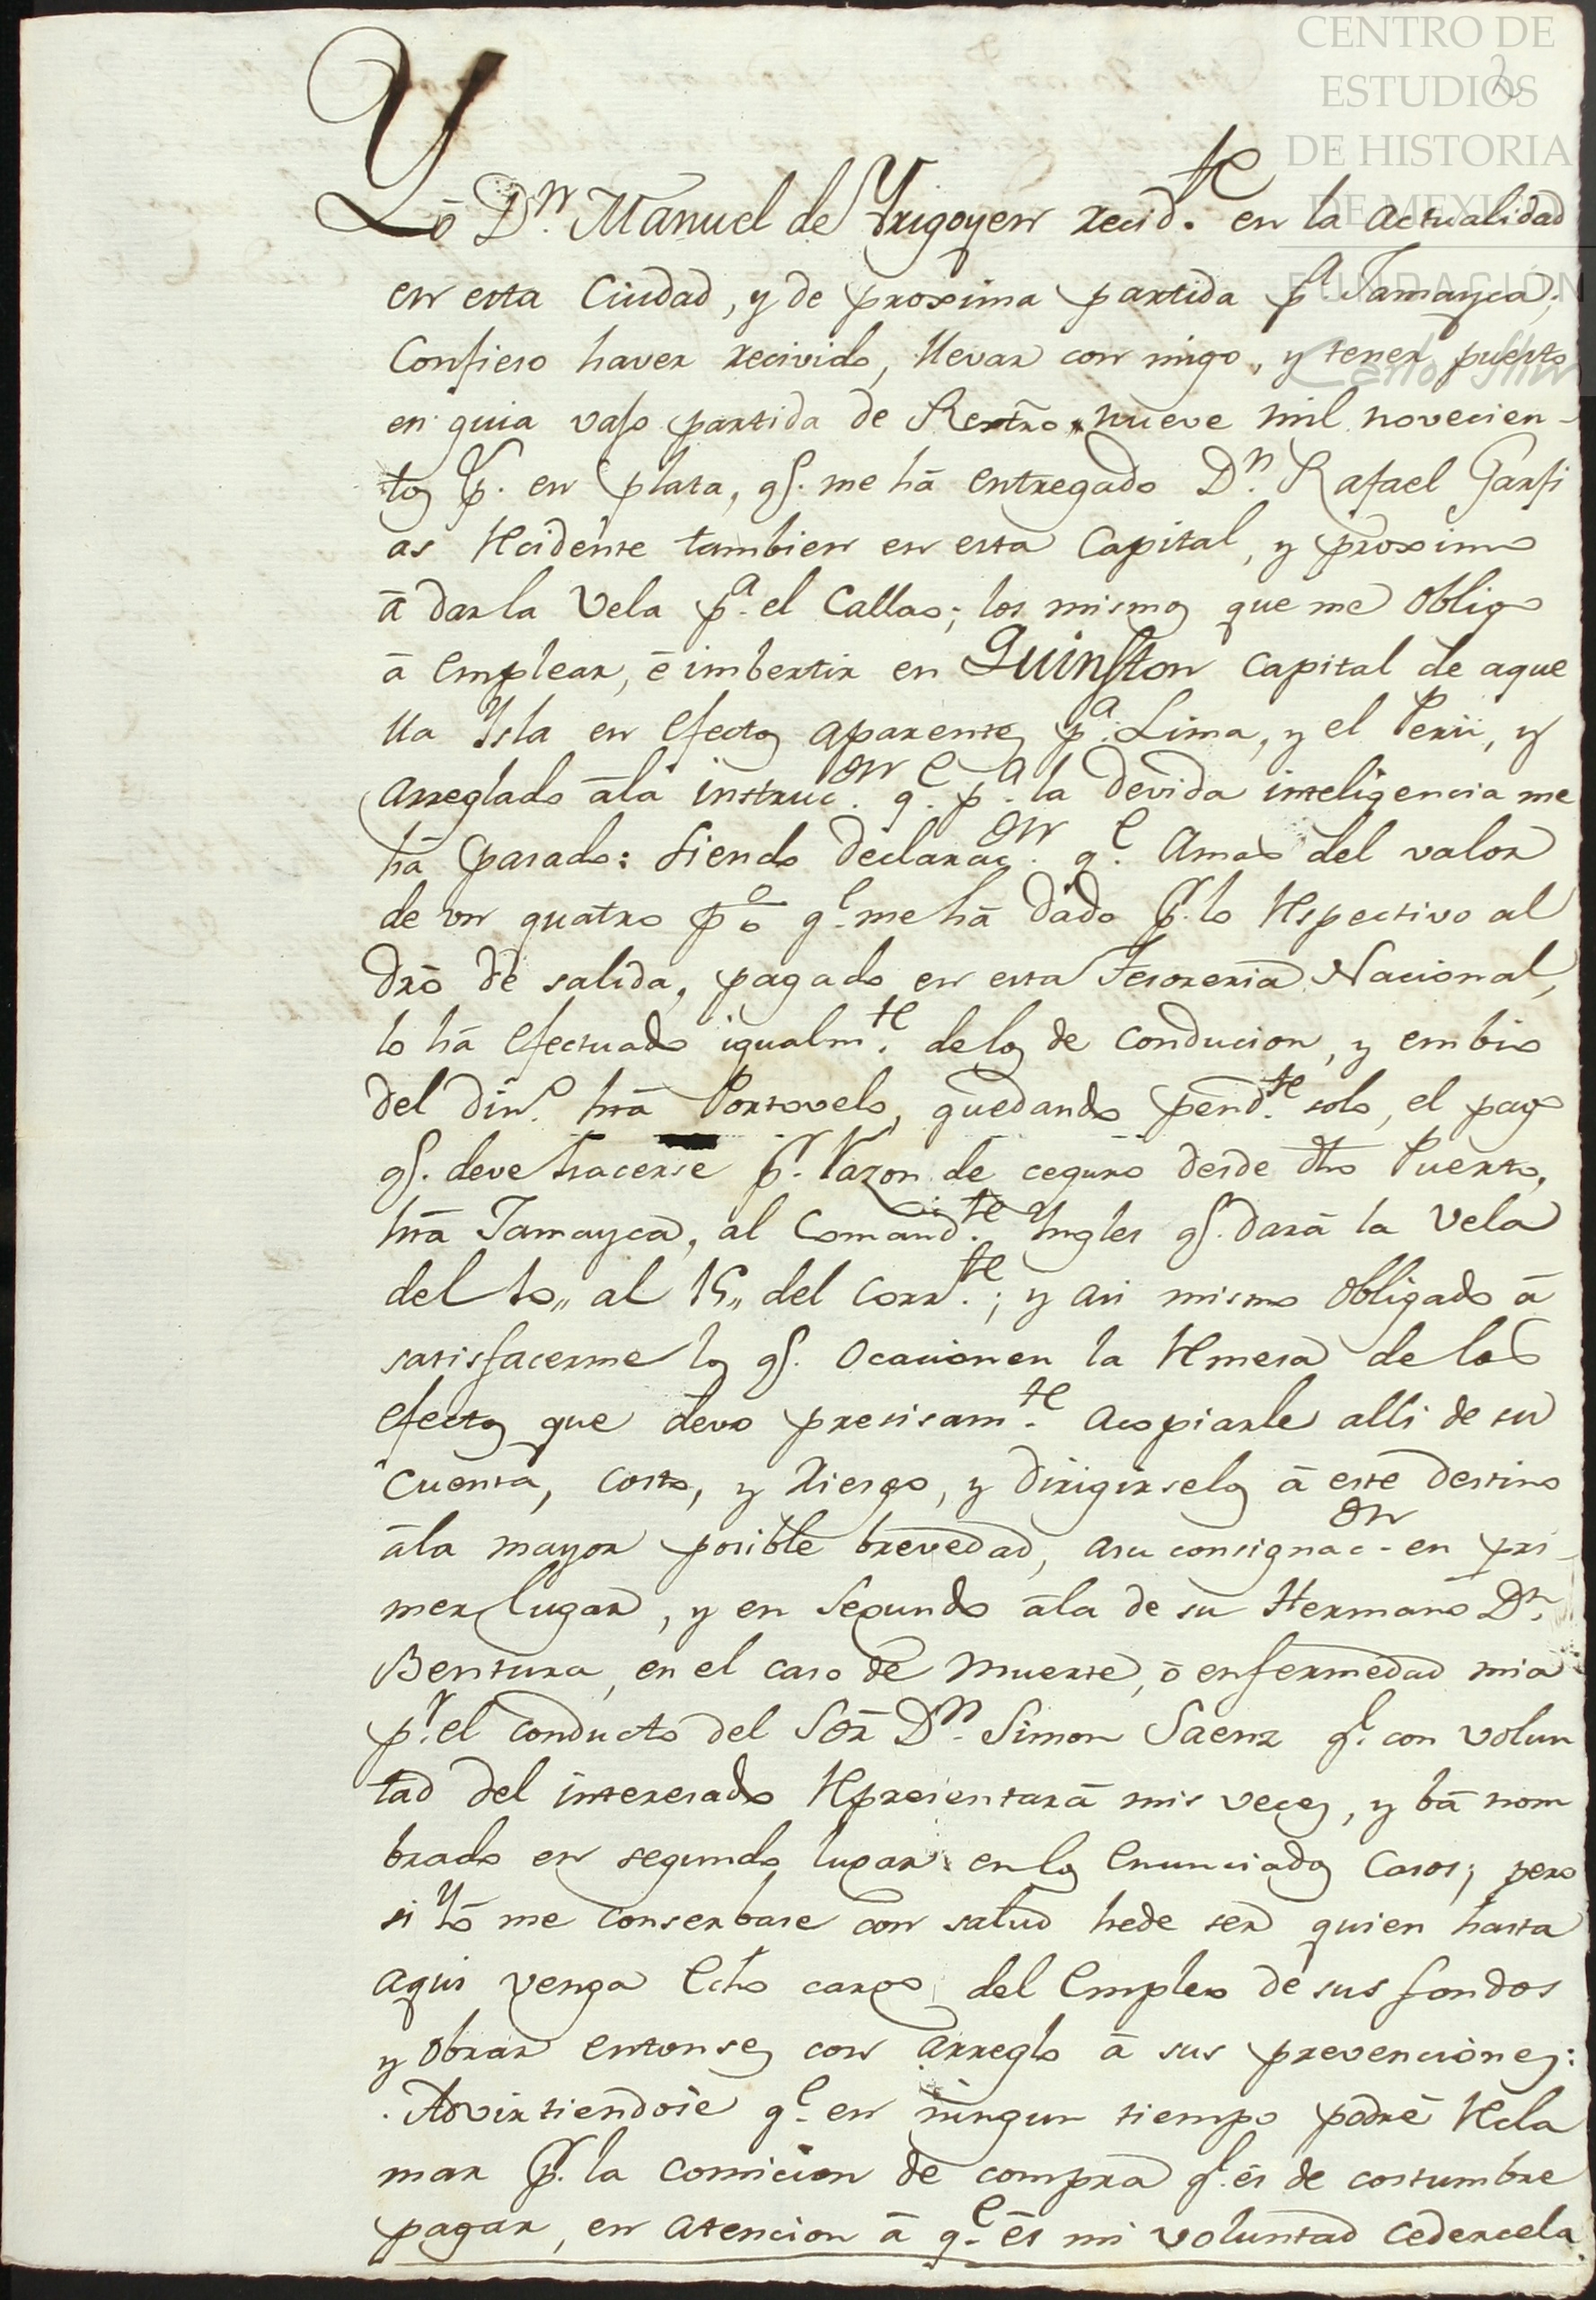 CENTRO DE
ESTUDIOS
DE HISTORIA
DE MEXICO
FUNDACIÓN
Carlos Slim
2
Yó Dn. Manuel de Yrigoyen recidte. en la actualidad
en esta Ciudad, y de proxima partida pa Jamayca;
Confieso haver recivido, llevar con migo, y tener puesto
en guia vajo partida de Rextro nueve mil novecien-
tos ps. en plata, qe. me há entregado Dn. Rafael Garfi
as Recidente tambien en esta Capital, y proximo
á dar la Vela pa. el Callao; los mismos que me obligo
á emplear, é imbertir en Quinston Capital de aque
lla Ysla en efectos aparentes pa. Lima, y el Perú, y
arreglado ála instrucon. qe. pa. la devida inteligencia me
há pasado: siendo declaracon. qe. Amas del valor
de un quatro p% qe. me há dado pr. lo Respectivo al
dró de salida, pagado en esta Tesoreria Nacional,
lo há efectuado igualmte. delos de conducion, y embio
del dino. hta Portovelo, quedando pendte. solo, el pago
qe. deve hacerse pr. Razon de ceguro desde dho Puerto,
hta Jamayca, al Comandte. Yngles qe. dará la Vela
del 10,, al 15,, del Corrte.; y asi mismo obligado á
satisfacerme los qe. Ocacionen la Remesa de los
efectos que devo presisamte. Acopiarle alli de su
Cuenta, costo, y Riesgo, y dirigirselos á este destino
ála mayor posible brevedad, asu consignacon. en pri-
mer lugar, y en Segundo ála de su Hermano Dn.
Bentura, en el caso de Muerte, ó enfermedad mia
pr. el conducto del Sor Dn. Simon Saenz qe. con volun
tad del interesado Representará mis veces, y bá nom
brado en segundo lugar en los enunciados Casos; pero
si Yó me conserbase con salud hede ser quien hasta
aqui venga Echo cargo del Empleo de sus fondos
y Obrar entonses con arreglo á sus prevenciones:
Advirtiendose qe. en ningun tiempo podré Recla
mar pr. la comicion de compra qe. és de costumbre
pagar, en atencion á qe. és mi voluntad cedercela